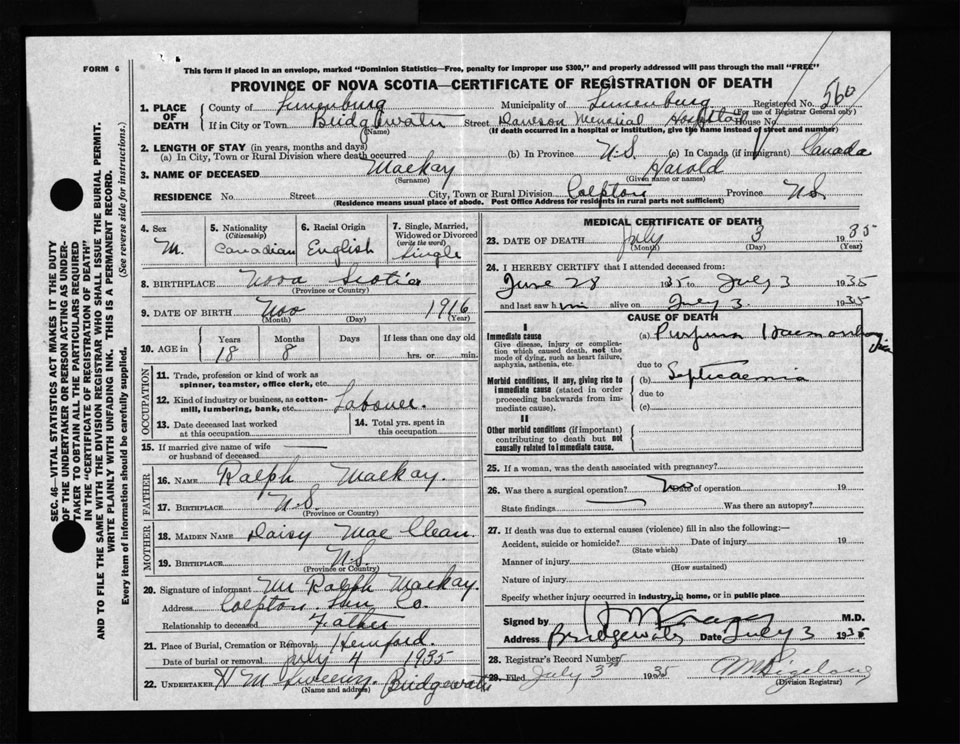 FORM 6
This form if placed in an envelope, marked "Dominion Statistics—Free, penalty for improper use $300," and properly addressed will pass through the mail "FREE"
PROVINCE OF NOVA SCOTIA—CERTIFICATE OF REGISTRATION OF DEATH
1. PLACE OF DEATH
County of Lunenburg Municipality of Lunenburg Registered No. 560
(For use of Registrar General only)
If in City or Town Bridgewater Street Dawson Memorial Hospital House No.
(Name) (If death occurred in a hospital or institution, give the name instead of street and number)
2. LENGTH OF STAY (in years, months and days)
(a) In City, Town or Rural Division where death occurred (b) In Province N.S. (c) In Canada (if immigrant) Canada
3. NAME OF DECEASED Mackay Harold
(Surname) (Given name or names)
RESIDENCE No. Street City, Town or Rural Division Colpton Province N.S.
(Residence means usual place of abode. Post Office Address for residents in rural parts not sufficient)
4. Sex M.
5. Nationality (Citizenship) Canadian
6. Racial Origin English
7. Single, Married, Widowed or Divorced (write the word) Single
8. BIRTHPLACE Nova Scotia
(Province or Country)
9. DATE OF BIRTH Nov 1916
(Month) (Day) (Year)
10. AGE in Years Months Days If less than one day old
18 8 hrs. or min.
OCCUPATION
11. Trade, profession or kind of work as spinner, teamster, office clerk, etc.
12. Kind of industry or business, as cotton-mill, lumbering, bank, etc. Labourer.
13. Date deceased last worked at this occupation
14. Total yrs. spent in this occupation
15. If married give name of wife or husband of deceased
FATHER
16. NAME Ralph Mackay.
17. BIRTHPLACE N.S.
(Province or Country)
MOTHER
18. MAIDEN NAME Daisy Mac Clean.
19. BIRTHPLACE N.S.
(Province or Country)
20. Signature of informant Mr Ralph Mackay.
Address Colpton. Lun Co.
Relationship to deceased Father
21. Place of Burial, Cremation or Removal Hemford.
Date of burial or removal July 4 1935
22. UNDERTAKER H M Sweeny. Bridgewater
(Name and address)
MEDICAL CERTIFICATE OF DEATH
23. DATE OF DEATH July 3 1935
(Month) (Day) (Year)
24. I HEREBY CERTIFY that I attended deceased from:
June 28 1935 to July 3 1935
and last saw him alive on July 3. 1935
CAUSE OF DEATH
I
Immediate cause
Give disease, injury or complication which caused death, not the mode of dying, such as heart failure, asphyxia, asthenia, etc.
(a) Purpura Haemorrhagica
due to
Morbid conditions, if any, giving rise to immediate cause (stated in order proceeding backwards from immediate cause).
(b) Septicaemia
due to
(c)
II
Other morbid conditions (if important) contributing to death but not causally related to immediate cause.
25. If a woman, was the death associated with pregnancy?
26. Was there a surgical operation? No Date of operation 19
State findings Was there an autopsy?
27. If death was due to external causes (violence) fill in also the following:—
Accident, suicide or homicide? Date of injury 19
(State which)
Manner of injury
(How sustained)
Nature of injury
Specify whether injury occurred in industry, in home, or in public place
Signed by M.D.
Address Bridgewater Date July 3 1935
28. Registrar's Record Number
29. Filed July 3rd 1935
(Division Registrar)
SEC. 46—VITAL STATISTICS ACT MAKES IT THE DUTY
OF THE UNDERTAKER OR PERSON ACTING AS UNDER-
TAKER TO OBTAIN ALL THE PARTICULARS REQUIRED
IN THE "CERTIFICATE OF REGISTRATION OF DEATH"
AND TO FILE THE SAME WITH THE DIVISION REGISTRAR WHO SHALL ISSUE THE BURIAL PERMIT.
WRITE PLAINLY WITH UNFADING INK. THIS IS A PERMANENT RECORD.
Every item of information should be carefully supplied. (See reverse side for instructions.)